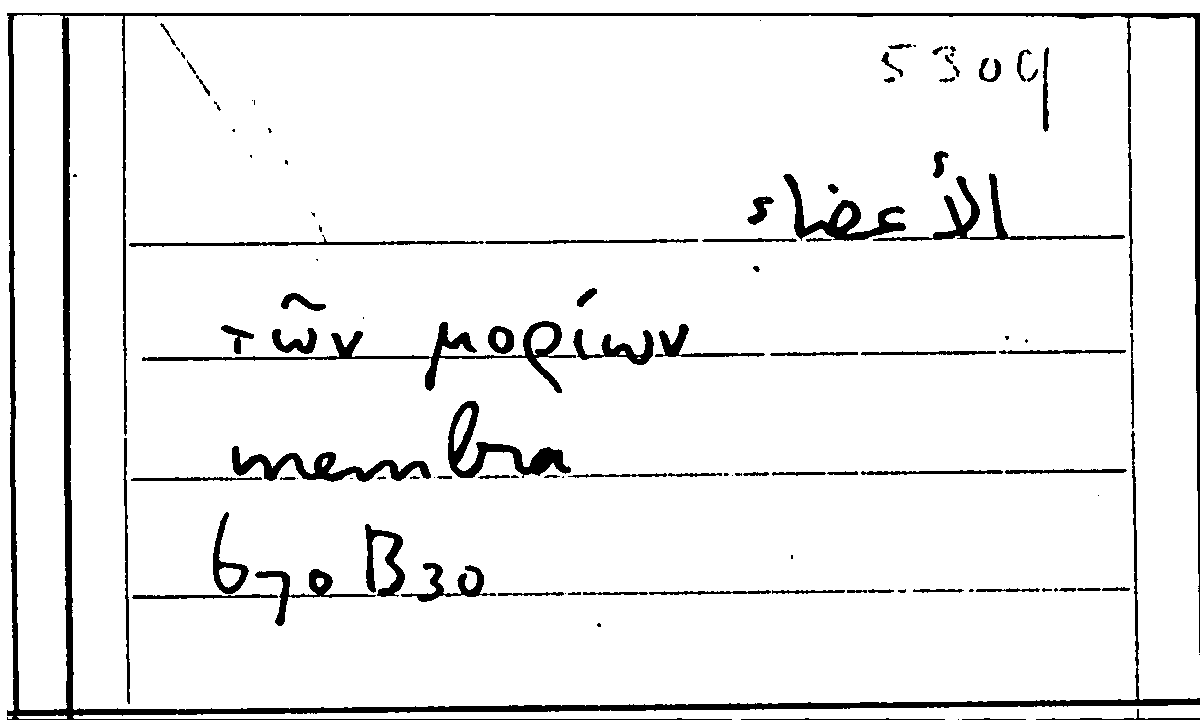 5309
الأعضاء
τῶν μορίων
membra
670 B 30